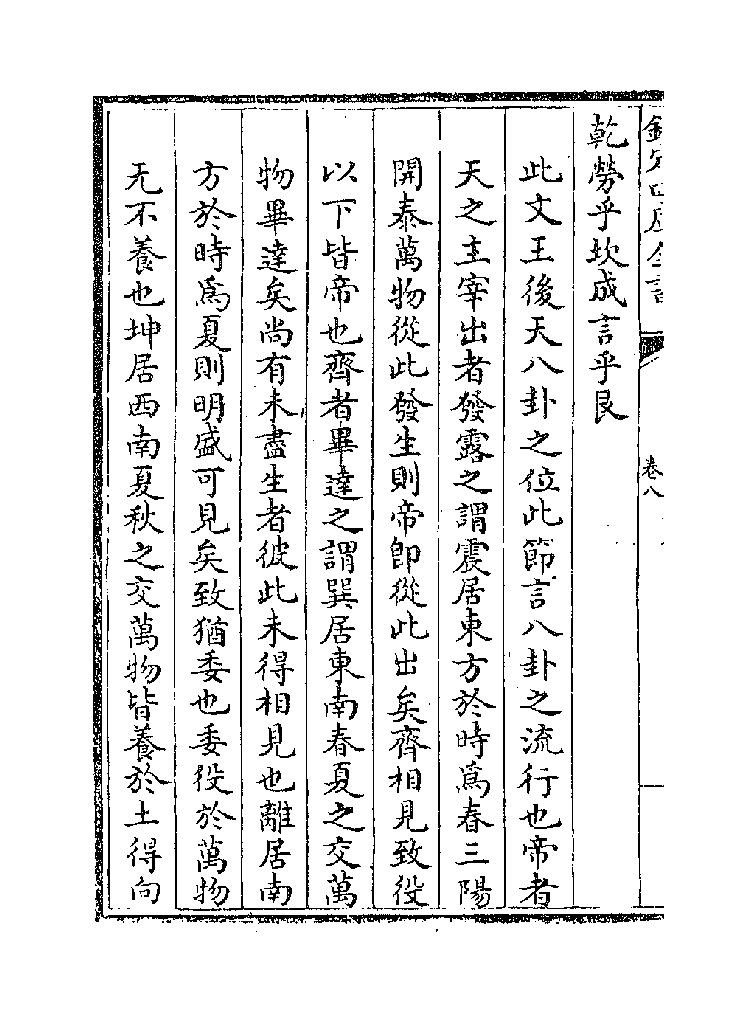 欽定四庫全書
卷八
乾勞乎坎成言乎艮
此文王後天八卦之位此節言八卦之流行也帝者
天之主宰出者發露之謂震居東方於時爲春三陽
開泰萬物從此發生則帝卽從此出矣齊相見致役
以下皆帝也齊者畢達之謂巽居東南春夏之交萬
物畢達矣尚有未盡生者彼此未得相見也離居南
方於時爲夏則明盛可見矣致猶委也委役於萬物
无不養也坤居西南夏秋之交萬物皆養於土得向